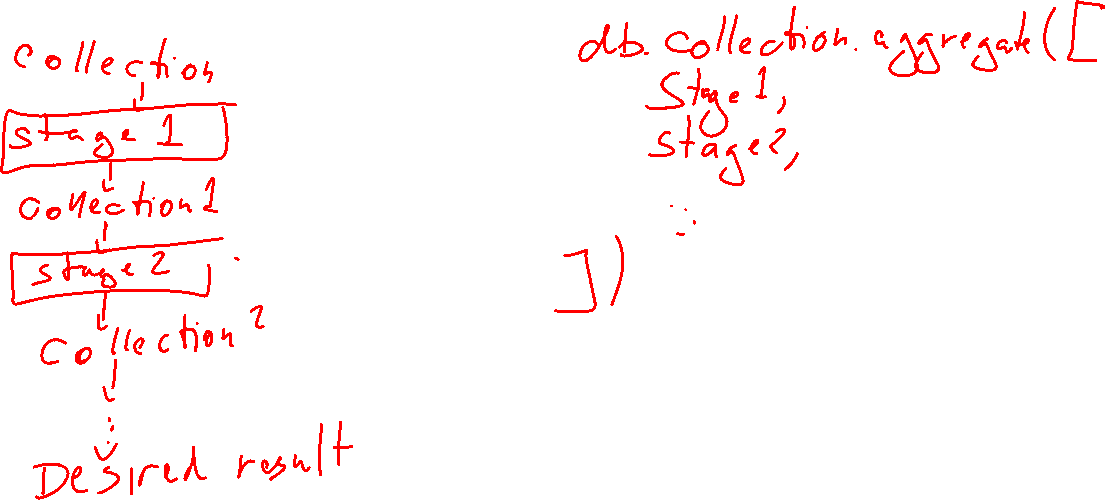 Collection
Stage 1
Collection 1
Stage 2
Collection 2
Desired result
db.collection.aggregate([
Stage 1,
Stage 2,
])